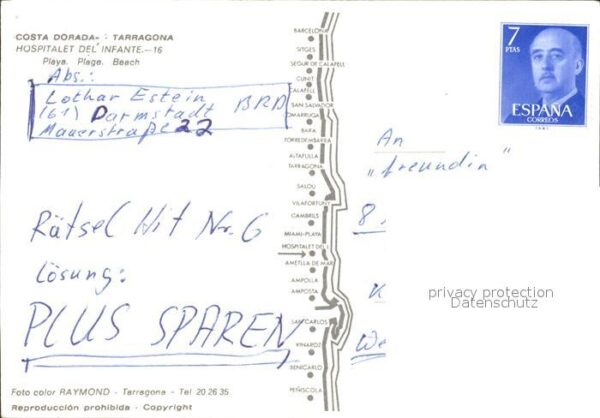 COSTA DORADA - TARRAGONA
HOSPITALET DEL INFANTE.-16
Playa. Plage. Beach
Abs.:
Lothar Estein BRD
(61) Darmstadt
Mauerstraße 22
Rätsel Hit Nr. 6
Lösung:
PLUS SPAREN
Foto color RAYMOND - Tarragona - Tel 20.26.35
Reproducción prohibida - Copyright
BARCELONA
SITGES
SEGUR DE CALAFELL
CUNIT
CALAFELL
SAN SALVADOR
COMARRUGA
BARA
TORREDEMBARRA
ALTAFULLA
TARRAGONA
SALOU
VILAFORTUNY
CAMBRILS
MIAMI-PLAYA
HOSPITALET DEL I.
AMETLLA DE MAR
AMPOLLA
AMPOSTA
SAN CARLOS
VINAROZ
BENICARLO
PEÑISCOLA
7
PTAS
ESPAÑA
CORREOS
An
„freundin"
8
K
We
privacy protection
Datenschutz